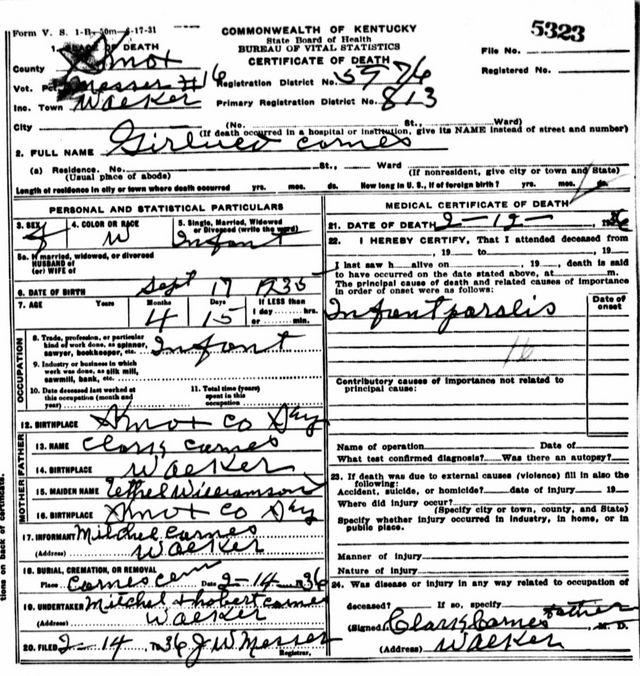 Form V. S. 1-B—50m—6-17-31
COMMONWEALTH OF KENTUCKY
State Board of Health
BUREAU OF VITAL STATISTICS
CERTIFICATE OF DEATH
5323
File No.
Registered No.
1. PLACE OF DEATH
County Knox
Vot. Pct. Messer # 16
Inc. Town Walker
Registration District No. 5976
Primary Registration District No. 813
City (No. St., Ward)
(If death occurred in a hospital or institution, give its NAME instead of street and number)
2. FULL NAME Carnes
(a) Residence. No. St., Ward
(Usual place of abode) (If nonresident, give city or town and State)
Length of residence in city or town where death occurred yrs. mos. ds. How long in U. S., if of foreign birth? yrs. mos.
PERSONAL AND STATISTICAL PARTICULARS
3. SEX f 4. COLOR OR RACE W 5. Single, Married, Widowed or Divorced (write the word) Infant
5a. If married, widowed, or divorced
HUSBAND of
(or) WIFE of
6. DATE OF BIRTH Sept 17 1935
7. AGE Years Months Days If LESS than
4 15 1 day hrs.
or min.
OCCUPATION
8. Trade, profession, or particular kind of work done, as spinner, sawyer, bookkeeper, etc. Infant
9. Industry or business in which work was done, as silk mill, sawmill, bank, etc.
10. Date deceased last worked at this occupation (month and year)
11. Total time (years) spent in this occupation
12. BIRTHPLACE Knox Co Ky
FATHER
13. NAME Clark Carnes
14. BIRTHPLACE Walker
MOTHER
15. MAIDEN NAME Ethel Williamson
16. BIRTHPLACE Knox Co Ky
17. INFORMANT Mitchel Carnes
(Address) Walker
18. BURIAL, CREMATION, OR REMOVAL
Place Carnes cem Date 2-14 1936
19. UNDERTAKER Mitchel & Carnes
(Address) Walker
20. FILED 2-14 1936 J W Messer
Registrar.
MEDICAL CERTIFICATE OF DEATH
21. DATE OF DEATH 2-12- 1936
22. I HEREBY CERTIFY, That I attended deceased from
, 19 to , 19
I last saw h alive on , 19 , death is said
to have occurred on the date stated above, at m.
The principal cause of death and related causes of importance
in order of onset were as follows:
Date of onset
Infant paralis
16
Contributory causes of importance not related to
principal cause:
Name of operation Date of
What test confirmed diagnosis? Was there an autopsy?
23. If death was due to external causes (violence) fill in also the
following:
Accident, suicide, or homicide? date of injury 19
Where did injury occur?
(Specify city or town, county, and State)
Specify whether injury occurred in industry, in home, or in
public place.
Manner of injury
Nature of injury
24. Was disease or injury in any way related to occupation of
deceased? If so, specify
(Signed) Clark Carnes Father M. D.
(Address) Walker
tions on back of certificate.